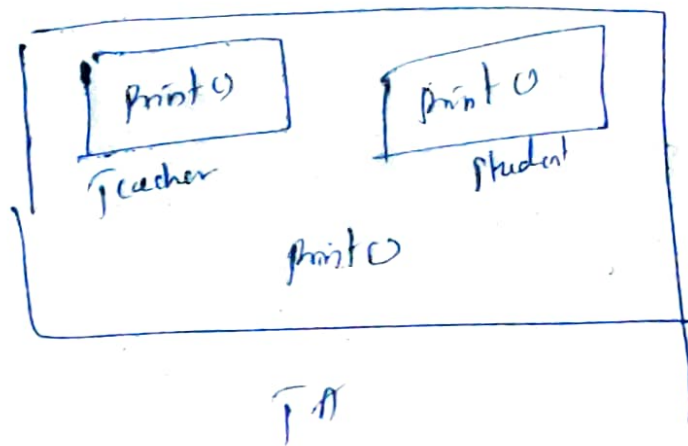 print() print()
Teacher Student
print()
TA